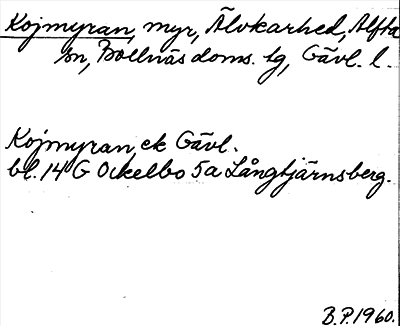 Kojmyran, myr, Älvkarhed, Alfta
sn, Bollnäs doms. lg, Gävl. l.
Kojmyran ek Gävl.
bl. 14 G Ockelbo 5a Långtjärnsberg.
B.P. 1960.